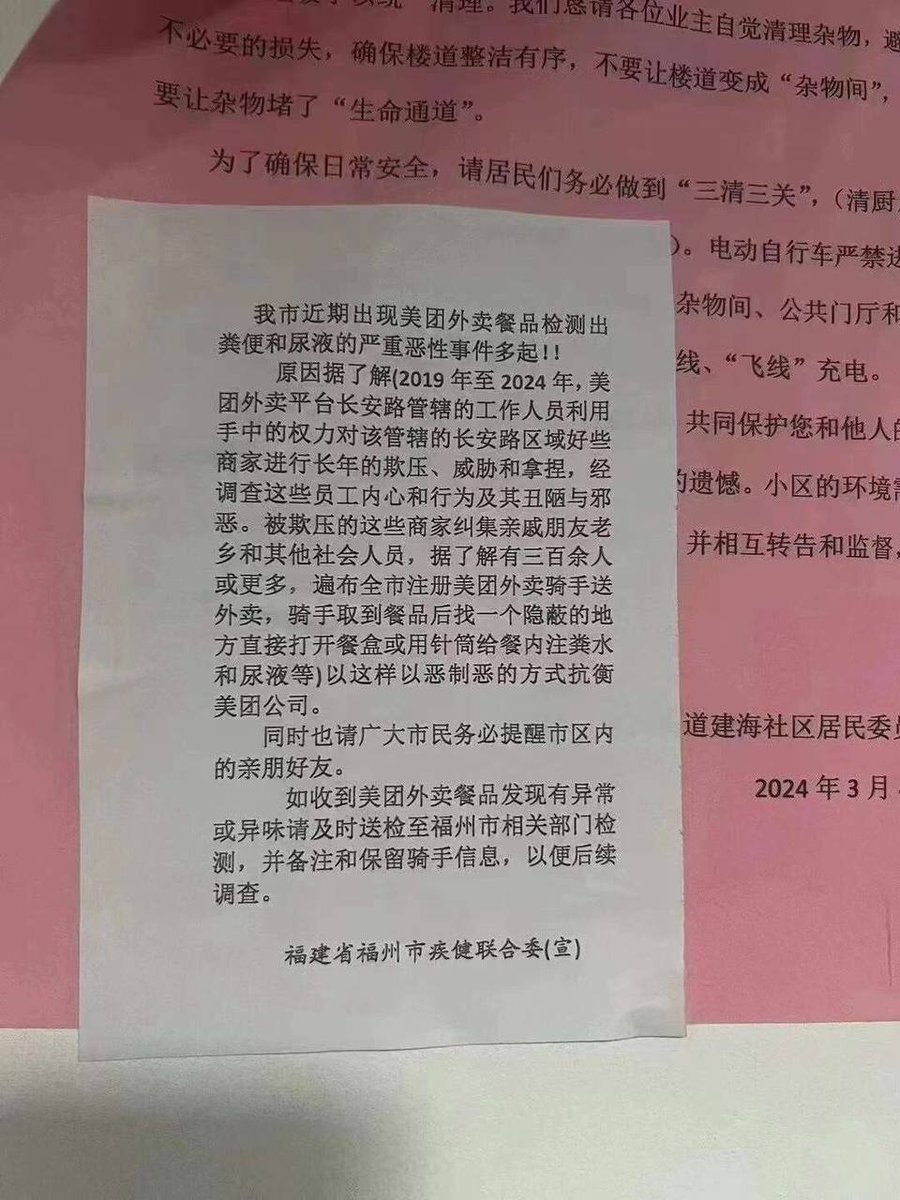 清理。我们恳请各位业主自觉清理杂物，避
不必要的损失，确保楼道整洁有序，不要让楼道变成“杂物间”，
要让杂物堵了“生命通道”。
为了确保日常安全，请居民们务必做到“三清三关”，（清厨
）。电动自行车严禁进
杂物间、公共门厅和
线、“飞线”充电。
共同保护您和他人的
的遗憾。小区的环境需
并相互转告和监督，
道建海社区居民委员
2024 年 3 月
我市近期出现美团外卖餐品检测出
粪便和尿液的严重恶性事件多起!!
原因据了解(2019 年至 2024 年，美
团外卖平台长安路管辖的工作人员利用
手中的权力对该管辖的长安路区域好些
商家进行长年的欺压、威胁和拿捏，经
调查这些员工内心和行为及其丑陋与邪
恶。被欺压的这些商家纠集亲戚朋友老
乡和其他社会人员，据了解有三百余人
或更多，遍布全市注册美团外卖骑手送
外卖，骑手取到餐品后找一个隐蔽的地
方直接打开餐盒或用针筒给餐内注粪水
和尿液等)以这样以恶制恶的方式抗衡
美团公司。
同时也请广大市民务必提醒市区内
的亲朋好友。
如收到美团外卖餐品发现有异常
或异味请及时送检至福州市相关部门检
测，并备注和保留骑手信息，以便后续
调查。
福建省福州市疾健联合委(宣)